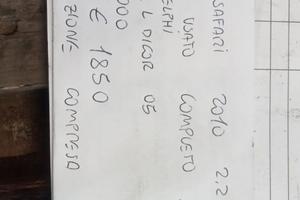 SAFARI 2010 2.2
USATO COMPLETO
ELPHI
L DICOR 05
000
€ 1850
ZIONE COMPRESA